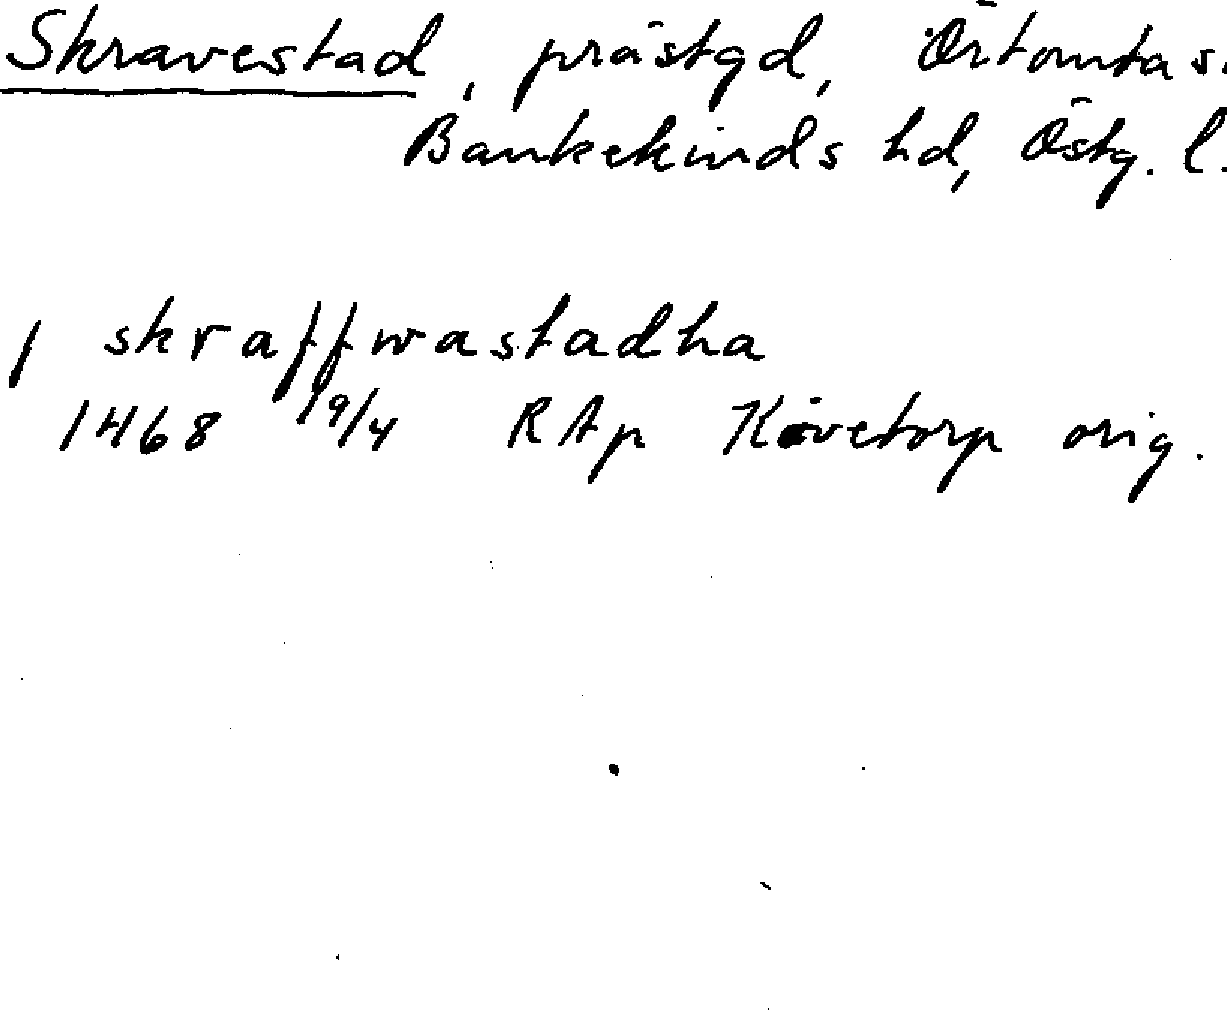 Skravestad, prästgd, Örtomta s.
Bankekinds hd, Östg. l.
j skraffwastadha
1468 19/4 RAp Követorp orig.